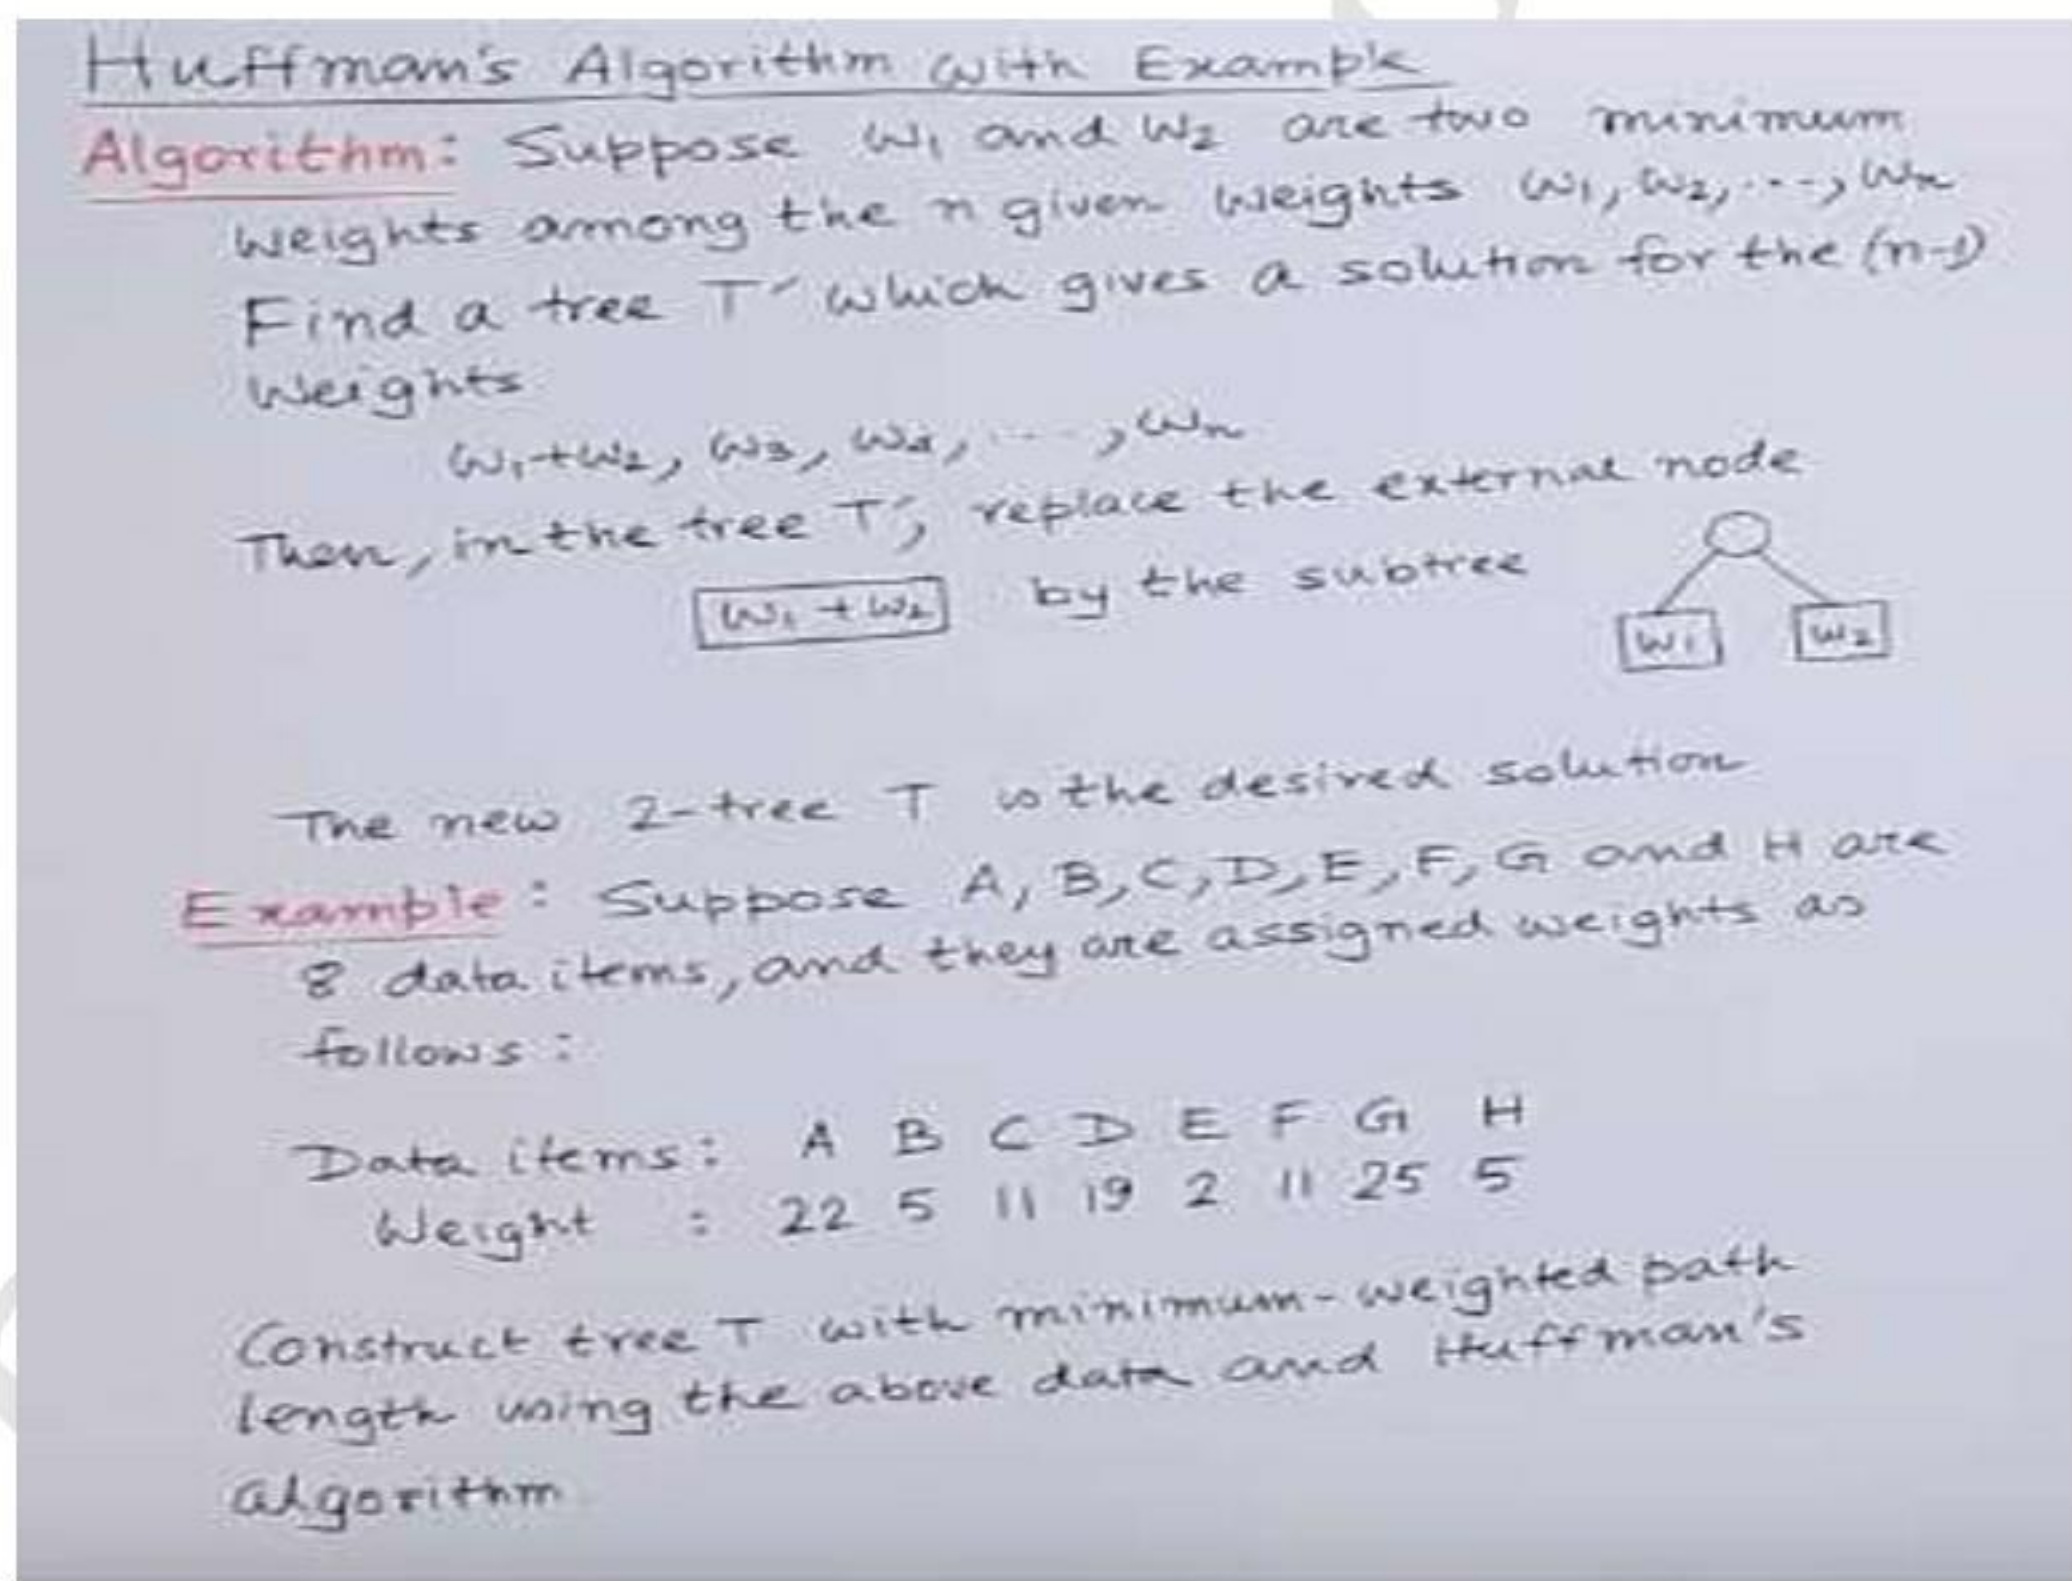 Huffman's Algorithm with Example
Algorithm: Suppose w1 and w2 are two minimum
weights among the n given weights w1, w2, ..., wn
Find a tree T' which gives a solution for the (n-1)
weights
w1+w2, w3, w4, ...., wn
Then, in the tree T', replace the external node
w1 + w2 by the subtree
w1 w2
The new 2-tree T is the desired solution
Example: Suppose A, B, C, D, E, F, G and H are
8 data items, and they are assigned weights as
follows:
Data items: A B C D E F G H
Weight : 22 5 11 19 2 11 25 5
Construct tree T with minimum-weighted path
length using the above data and Huffman's
algorithm